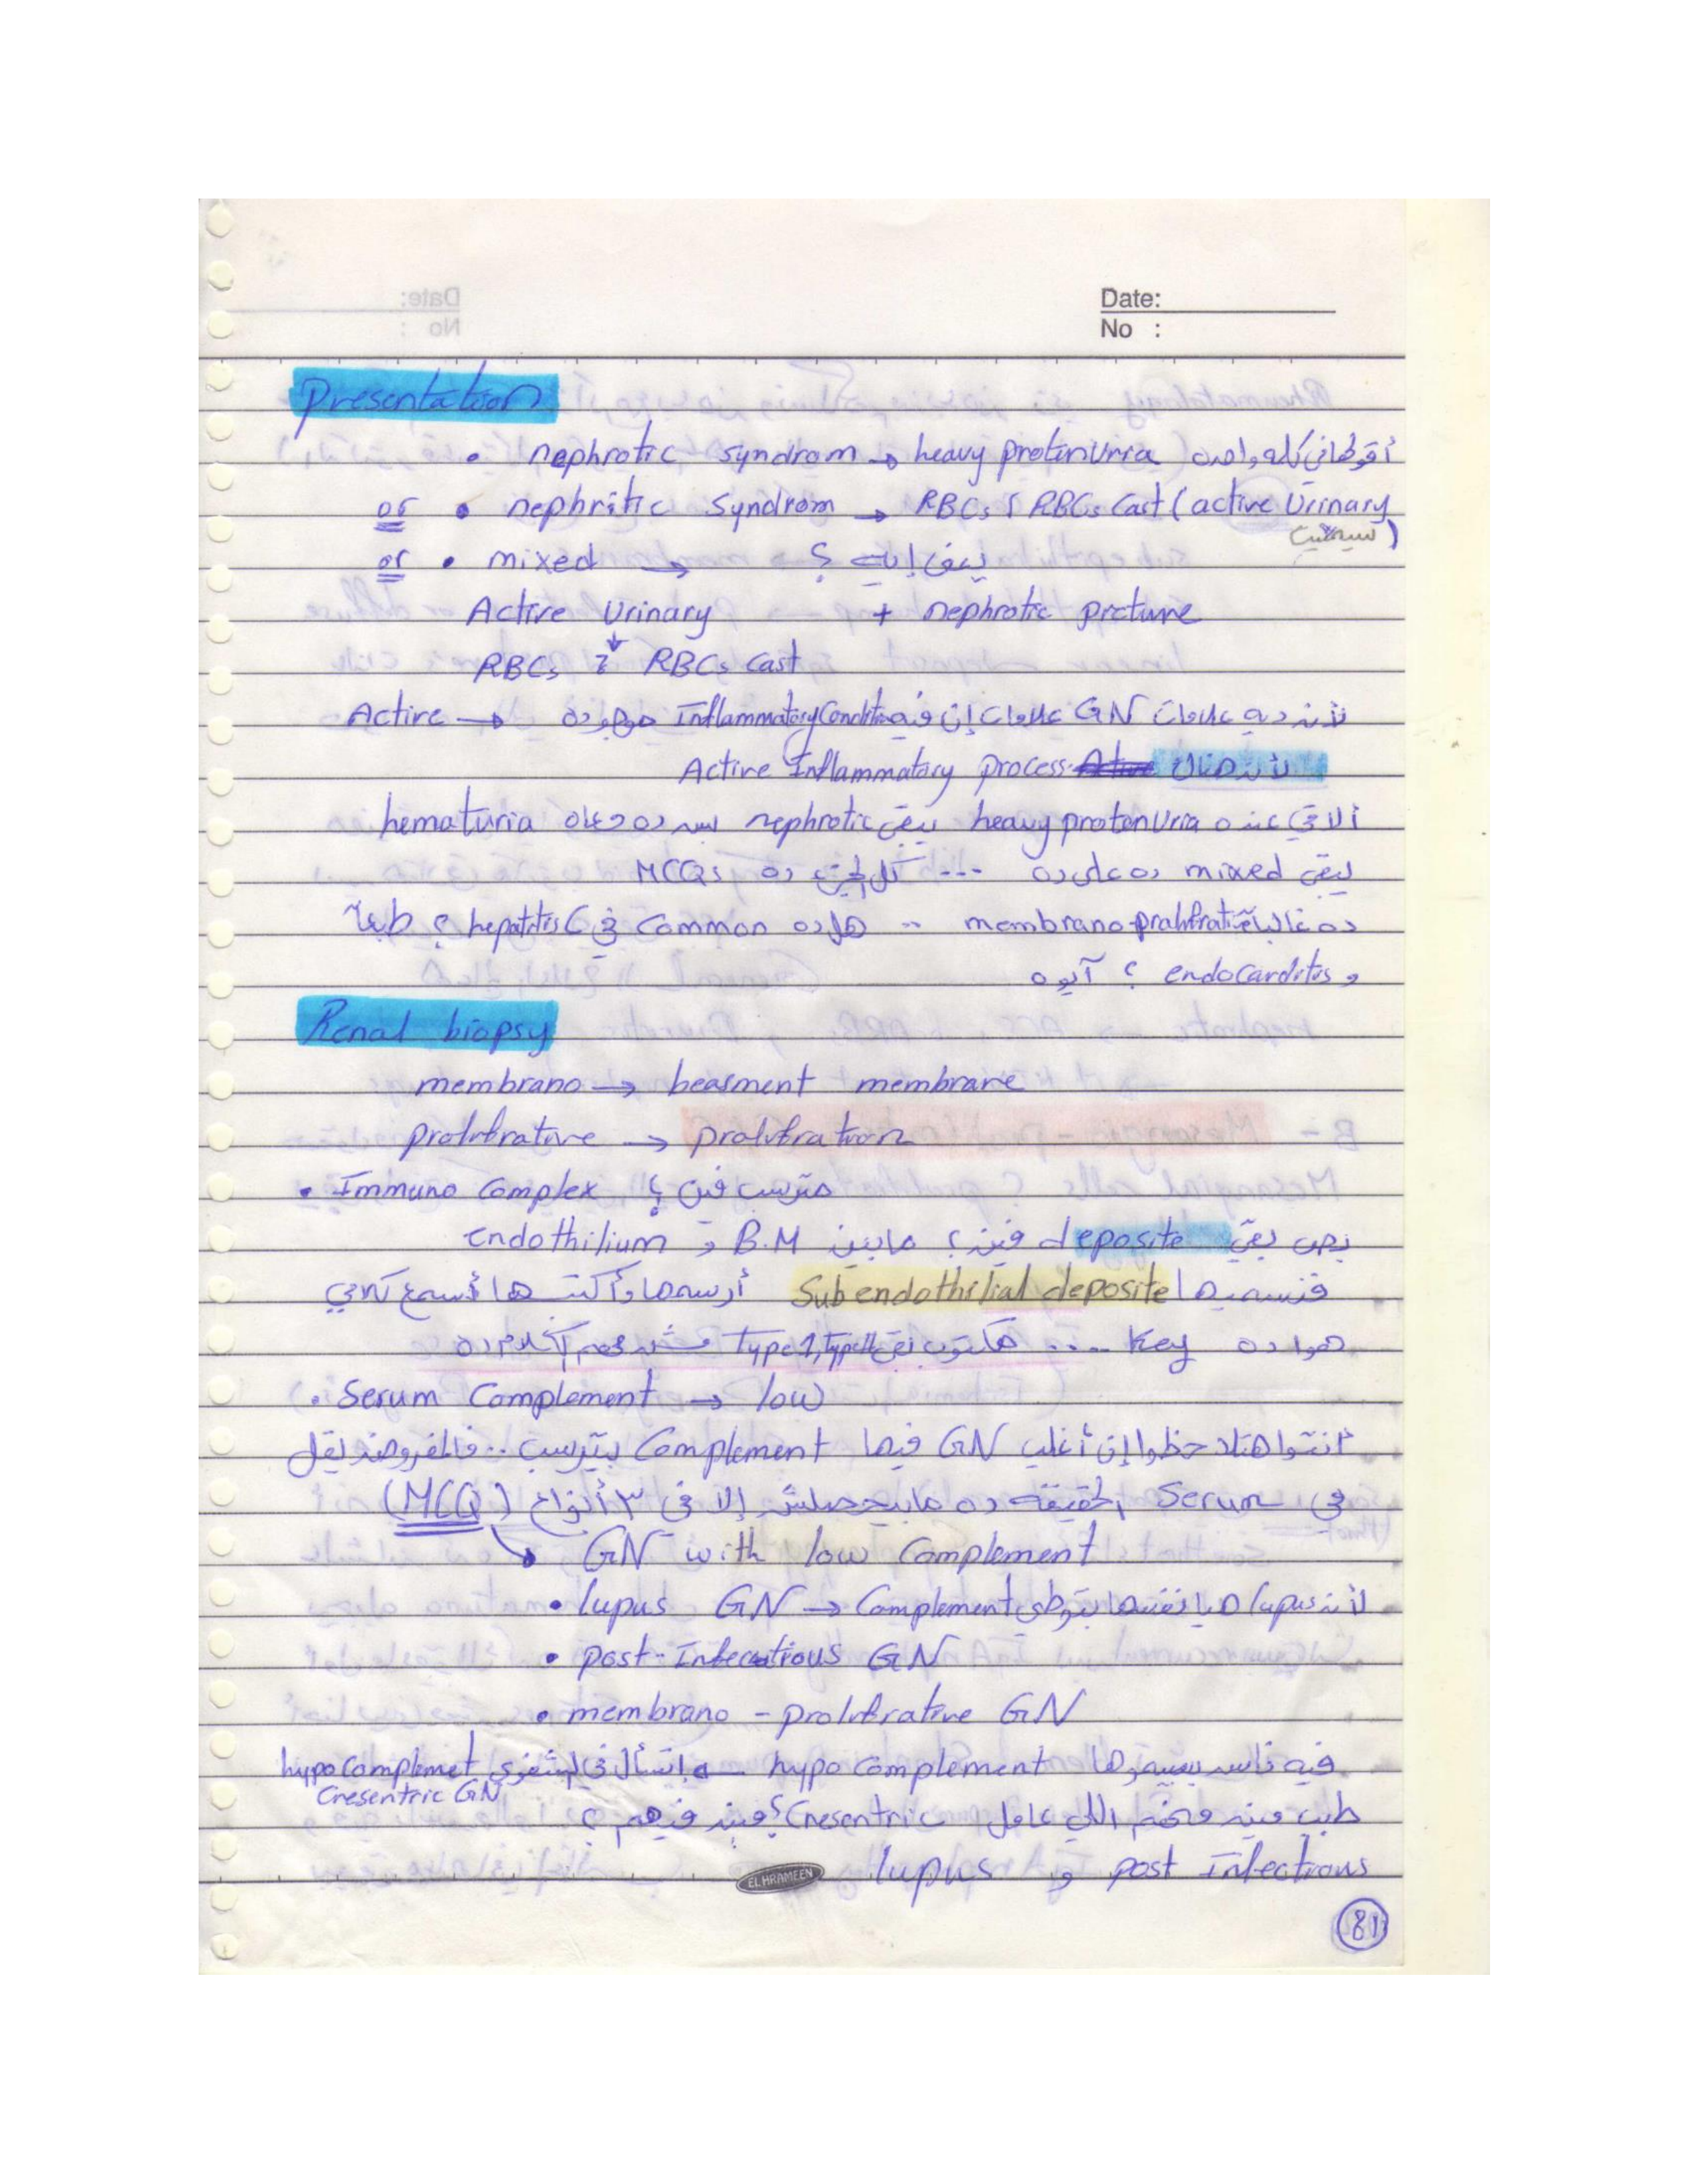 Date:
No :
Presentation
• nephrotic syndrom → heavy protenuria أقولها في كلمة واحده
or • nephritic Syndrom → RBCs & RBCs Cast (active Urinary
(سيديمنت
or • mixed → يعني إيه ؟
Active Urinary + nephrotic picture
RBCs & RBCs Cast
Active → لأنه ديه علامات GN علامات إن فيه Inflammatory Condition موجوده
لأنه هناك Active Inflammatory process
ألاقي عنده heavy protenuria يبقى nephrotic بس ده معاه hematuria
يبقى mixed ده على ده --- كل الجزء ده MCQs
ده غالباً membrano-prolifrative .. هل ده Common في hepatitis C ؟ طبعاً
و endocarditis ؟ آيوه
Renal biopsy
membrano → beasment membrane
prolifrative → prolifration
• Immuno Complex هتترسب فين ؟
بص بقى deposite فين ؟ مابين B.M و Endothilium
فنسميها Sub endothilial deposite أرسمها وأكتبها أسمع كلامي
هوا ده Key .... هكتوب بقى Type 1, Type II مش مهم الكلام ده
. Serum Complement → low
أنتوا هتلاحظوا إن أغلب GN فيها Complement بيترسب .. فالمفروض يقل
في Serum الحقيقه ده مابيحصلش إلا في ٣ أنواع (MCQ)
GN with low Complement
• lupus GN → Complement لأنه lupus هيا نفسها بتوطي
• post-Infecutious GN
• membrano - prolifrative GN
فيه ناس بيسموها hypo complement إتسأل في الشفوي hypo complemet
Cresentric GN
طيب مين فيهم اللي عامل Cresentric ؟ مين فيهم ؟
lupus و post Infectious
EL HRAMEEN
81